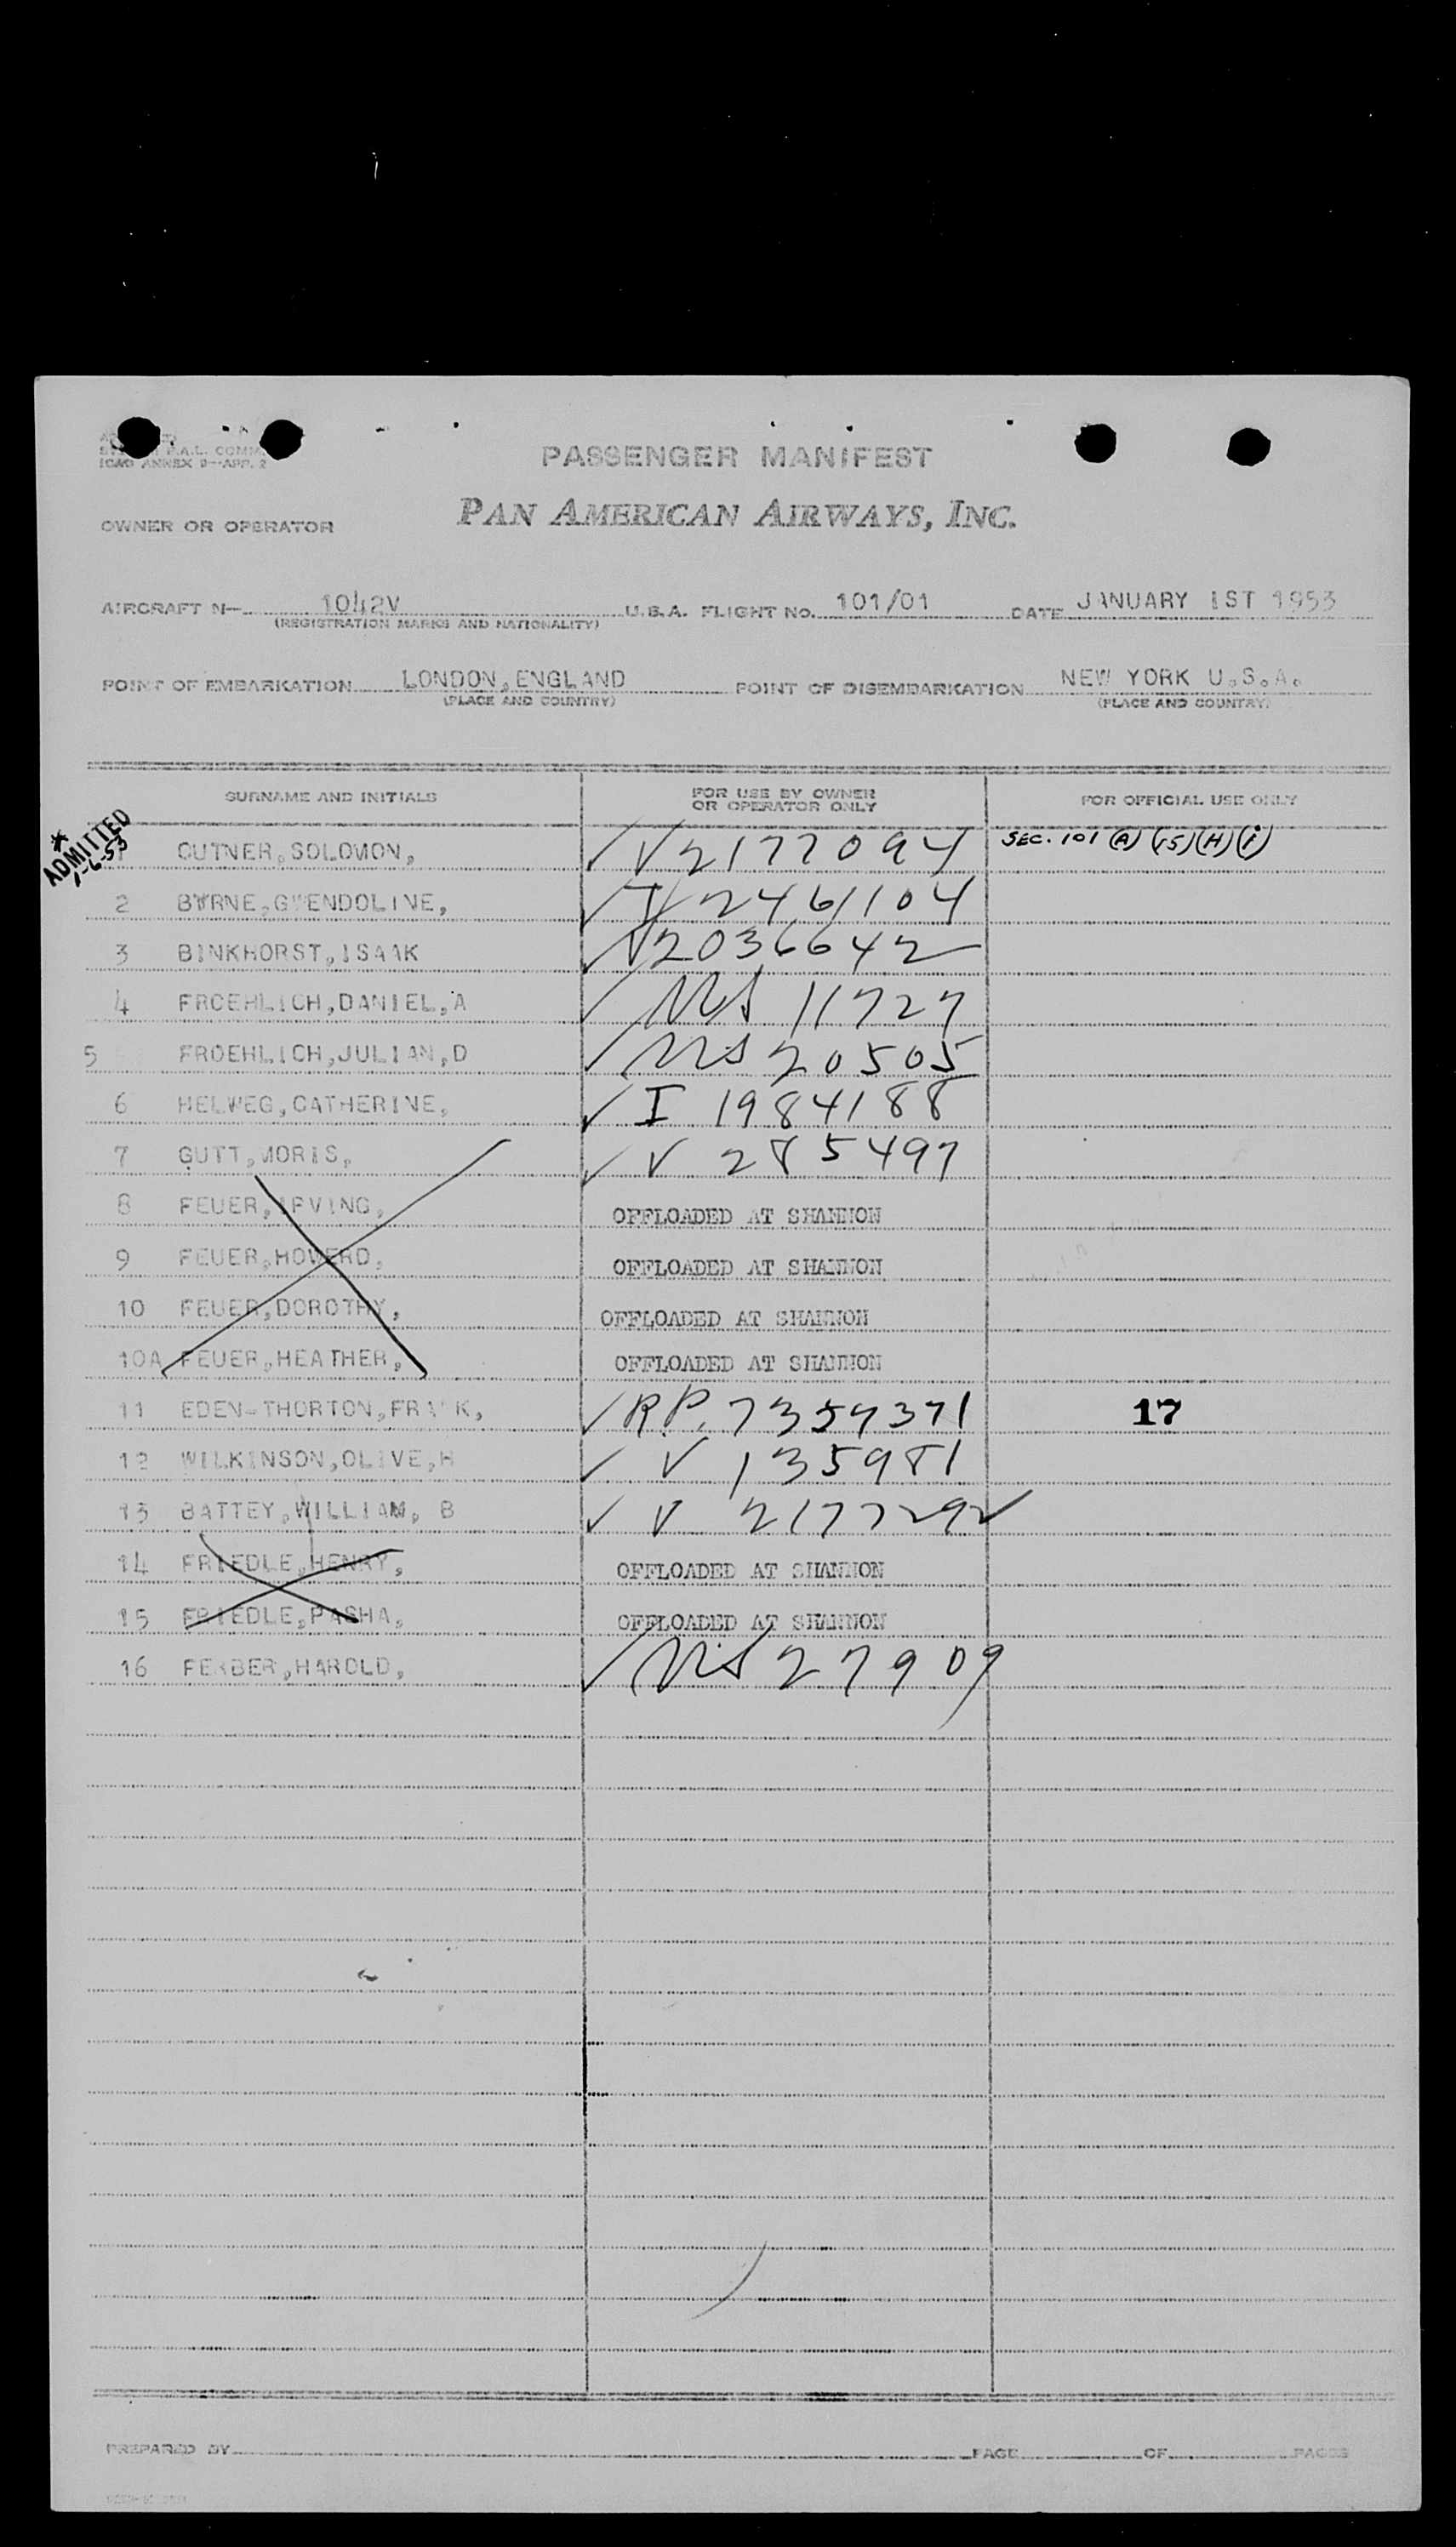 ICAO ANNEX 9-APP. 2
PASSENGER MANIFEST
OWNER OR OPERATOR PAN AMERICAN AIRWAYS, INC.
AIRCRAFT N- 1042V U.S.A. FLIGHT NO. 101/01 DATE JANUARY 1ST 1953
(REGISTRATION MARKS AND NATIONALITY)
POINT OF EMBARKATION LONDON, ENGLAND POINT OF DISEMBARKATION NEW YORK U.S.A.
(PLACE AND COUNTRY) (PLACE AND COUNTRY)
SURNAME AND INITIALS FOR USE BY OWNER OR OPERATOR ONLY FOR OFFICIAL USE ONLY
* ADMITTED 1-6-53
1 GUTNER, SOLOMON, V 2177094 SEC. 101 (A) (15) (H) (i)
2 BYRNE, GWENDOLINE, V 2461104
3 BINKHORST, ISAAK V 2036642
4 FROEHLICH, DANIEL, A 11727
5 FROEHLICH, JULIAN, D 20505
6 HELWEG, CATHERINE, I 1984188
7 GUTT, MORIS, V 285497
8 FEUER, IRVING, OFFLOADED AT SHANNON
9 FEUER, HOWERD, OFFLOADED AT SHANNON
10 FEUER, DOROTHY, OFFLOADED AT SHANNON
10A FEUER, HEATHER, OFFLOADED AT SHANNON
11 EDEN-THORTON, FRANK, R.P. 7357371 17
12 WILKINSON, OLIVE, H V 135981
13 BATTEY, WILLIAM, B V 2177292
14 FRIEDLE, HENRY, OFFLOADED AT SHANNON
15 FRIEDLE, PASHA, OFFLOADED AT SHANNON
16 FERBER, HAROLD, 27909
PREPARED BY PAGE OF PAGES